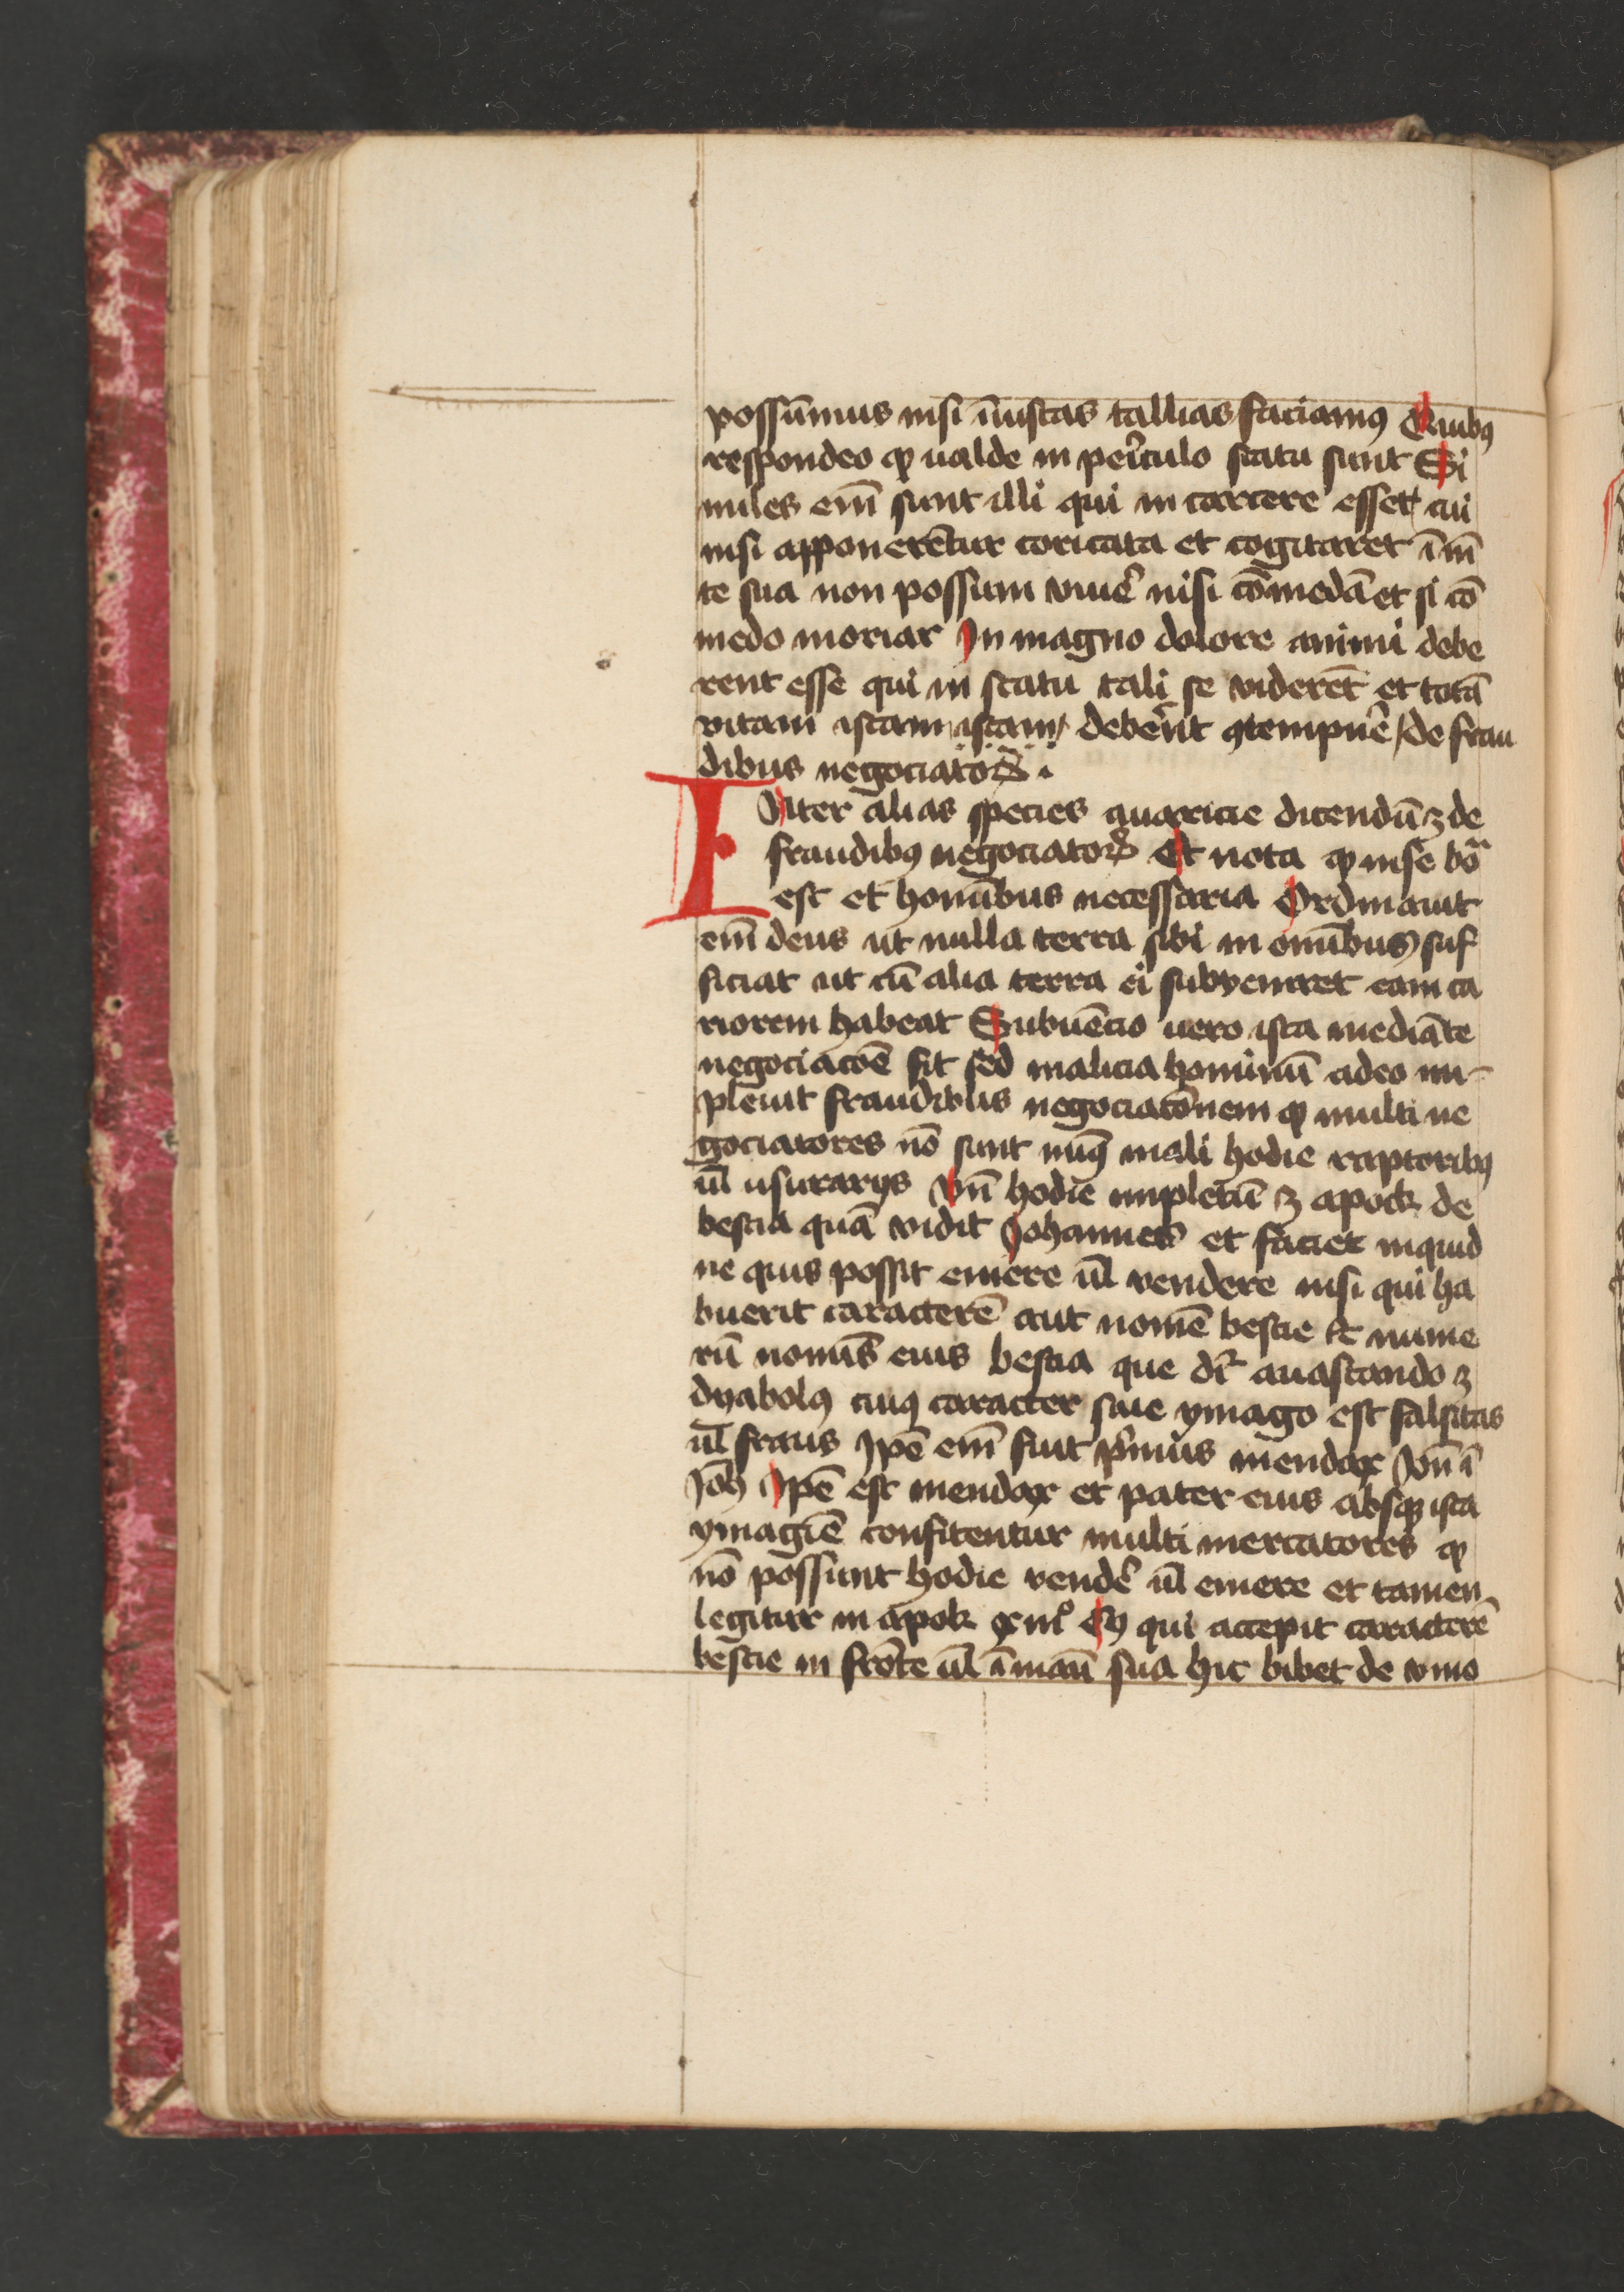 possūmus nisi īniustas tallias faciamꝰ Quibꝰ
respondeo ꝙ ualde in pericͥulo statu sunt Si
miles em̄ sunt illi qui in carcere esset cui
nisi apponerētur toxicata et cogitaret ī mē
te sua non possum viuẽ nisi cōmedā et si cō
medo moriar In magno dolore animi debe
rent esse qui in statu tali se viderēt et totā
vitam istam istam debeͬnt ꝯtempnẽ / de frau
dibus negociatoꝝ .
Inter alias species auaricie dicendū ꝫ de
fraudibꝰ negociatorꝝ Et nota ꝙ in se boͣ
est et homībus necessaria Ordinauit
em̄ deus ut nulla terra sibi in omībus suf
ficiat ut cū alia terra ei subveniret eam ca
riorem habeat Subuēcio uero ista mediāte
negociacōe fit sed malicia hominū adeo im-
pleuit fraudibus negociacōnem ꝙ multi ne
gociatores nō sunt minꝰ mali hodie raptoribꝰ
ul̄ usurarijs Vn̄ hodie impletū ꝫ apock de
bestia quā vidit Johannes et faciet inquid
ne quis possit emere ul̄ vendere nisi qui ha
buerit caracterē aut nomē bestie & nume
rū nomīs eius bestia que dr̄ auastando ꝫ
dyabolꝰ cuiꝰ caracter siue ymago est falsitas
ul̄ fraus Ipē em̄ fuit pͥmus mendax Vn̄ ī
Joh̄ Ipē est mendax et pater eius absqꝫ ista
ymagīe confitentur multi mercatores ꝙ
nō possunt hodie vendẽ ul̄ emere et tamen
legitur in apok xiiiiͦ Qꝫ qui accepit caracterē
bestie in frōte ul̄ ī manū sua hic bibet de vino